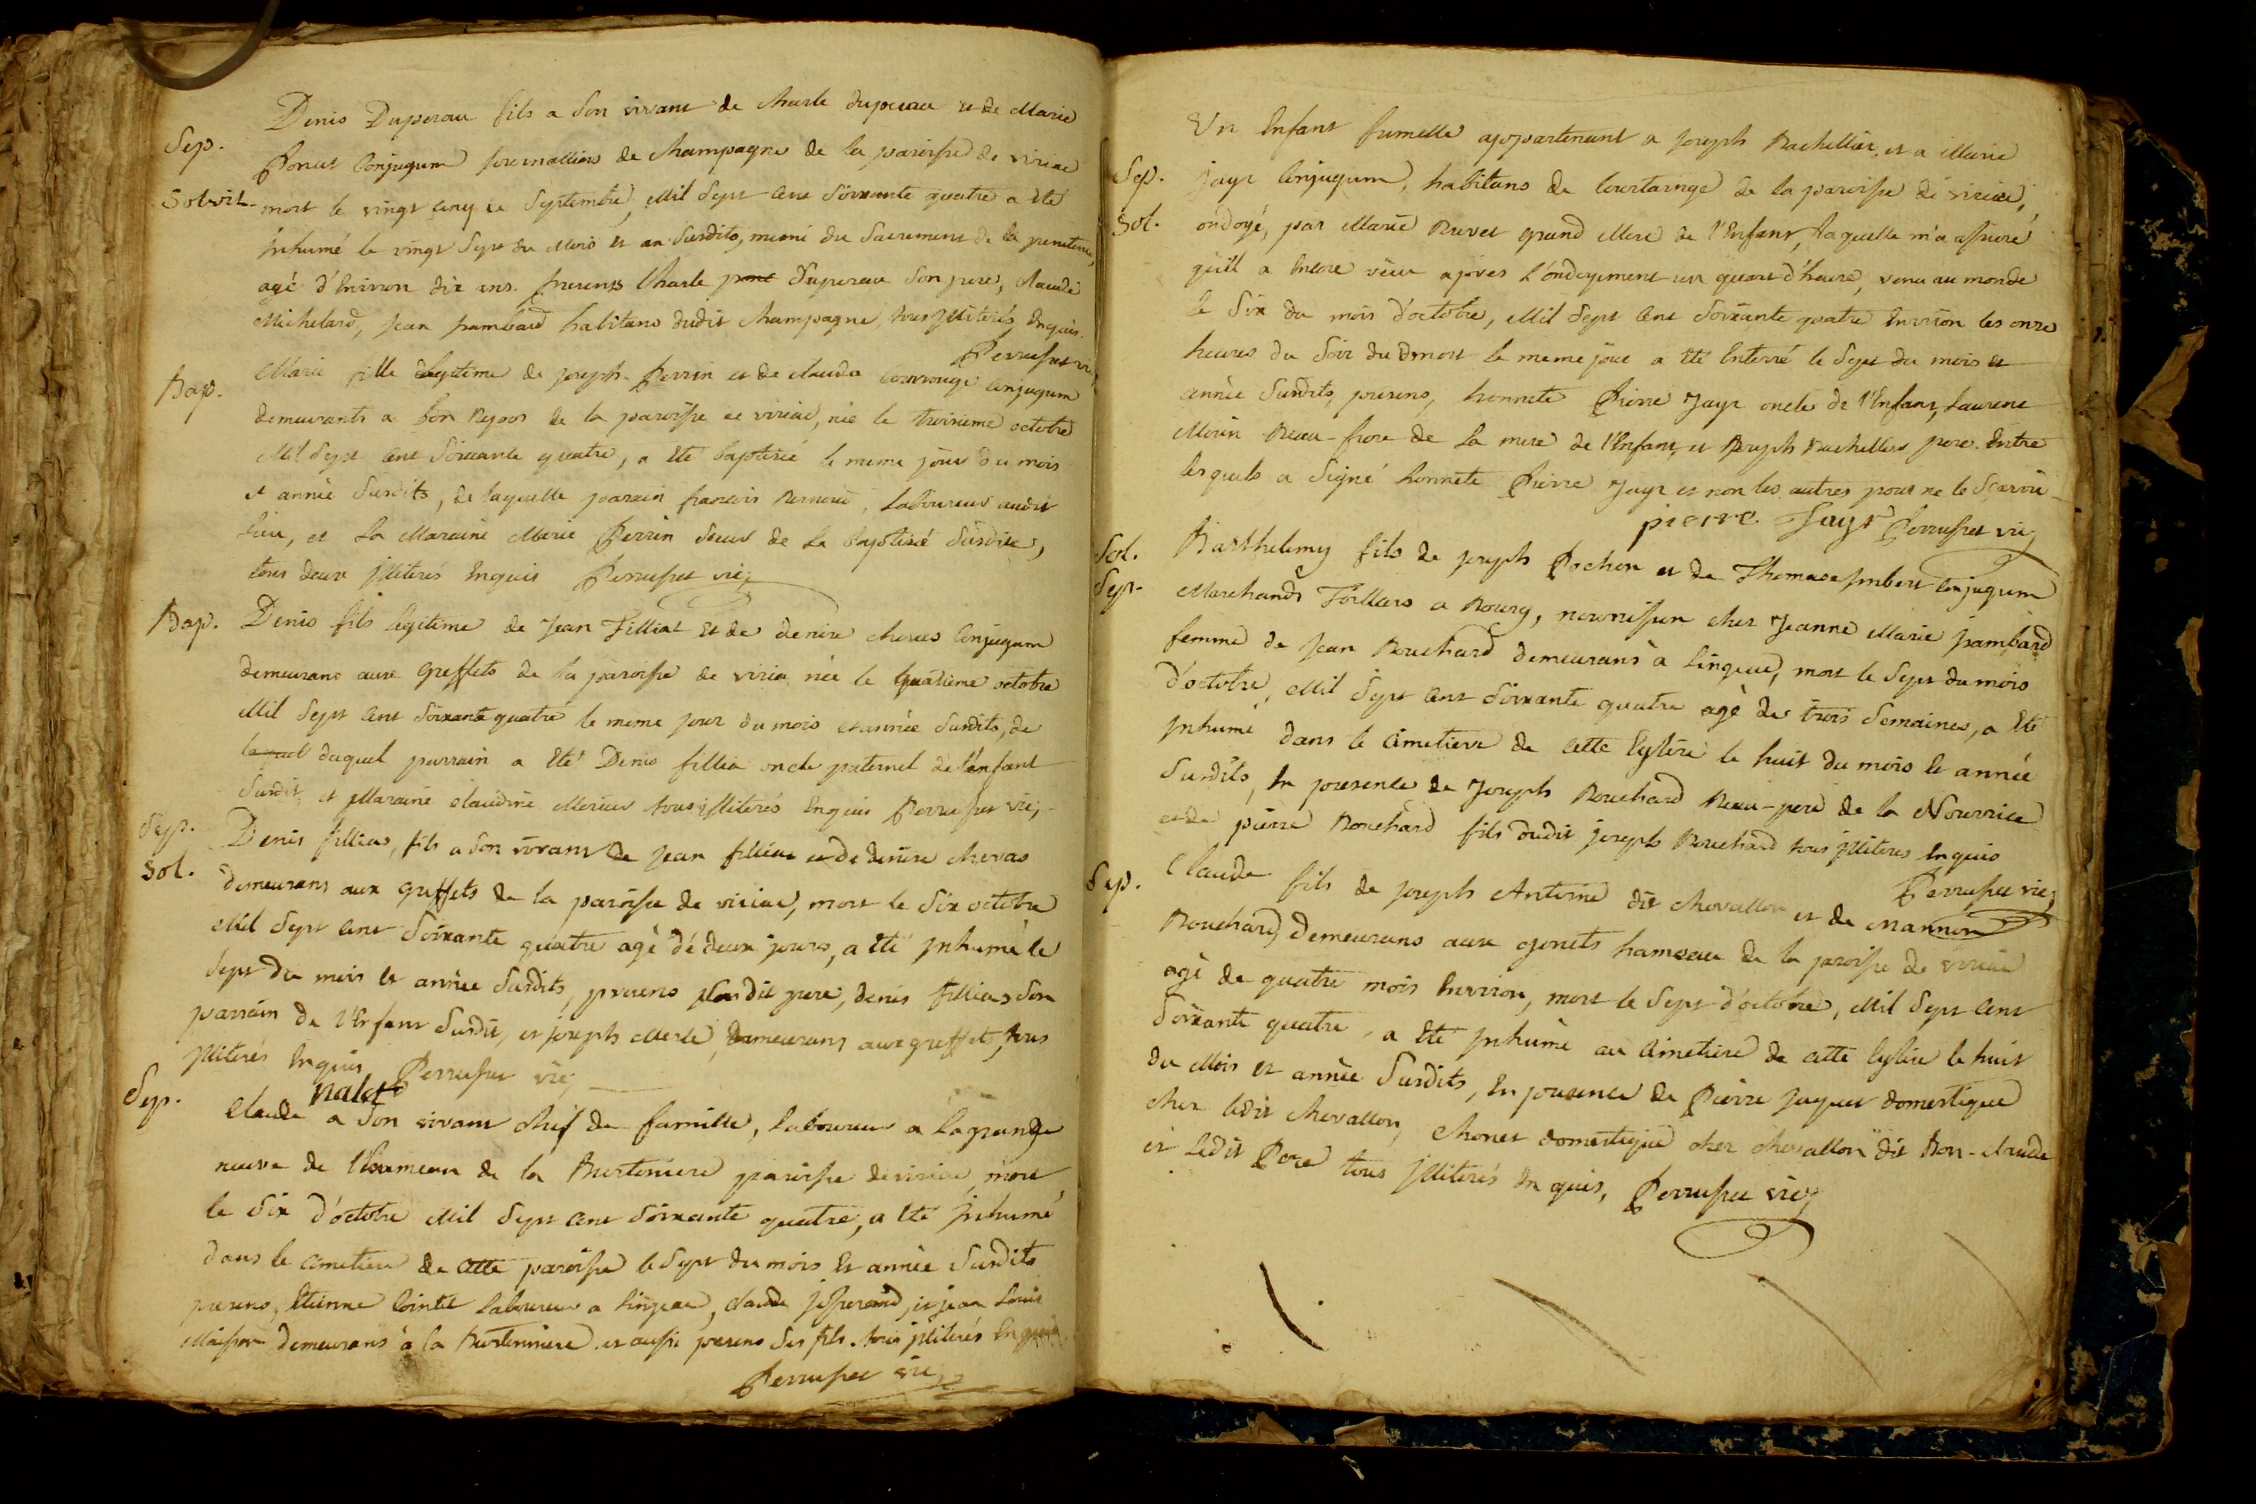 Denis Duperau fils a son vivant de charle duperau et de Marie
Sep.
Ponut conjugum journalliers de champagne de la paroisse de viriac
Solvit
mort le vingt cinq de Septembre, Mil Sept cent soixante quatre a eté
inhumé le vingt Sept du Mois et an Susdits, muni du Sacrement de la penitence,
agé d'environ dix ans. presens Charle Duperau Son pere, claude
Michelard, jean pambard habitans dudit champagne, tous illiterés enquis.
Perruset vic
Bap.
Marie fille legitime de joseph Perrin et de clauda conjugum
demeurants a bon Repos de la paroisse de viriac, née le troisieme octobre
Mil Sept cent Soixante quatre, a eté baptisée le meme jour du mois
et année Susdits, de laquelle parain francois, laboureur audit
lieu, et la Maraine Marie Perrin Seur de la baptisée Susdite,
tous deux illiterés enquis Perruset vic
Bap.
Denis fils legitime de Jean Filliat et de denise chevas conjugum
demeurans aux Greffets de la paroisse de viria née le quatrieme octobre
Mil Sept cent soixante quatre le meme jour du mois et année Susdits, de
lequel duquel parrain a eté Denis fillia oncle paternel de l'enfant
Susdit, et Maraine claudine tous illiterés enquis Perruset vic
Sep.
Denis fillias, fils a son vivant de Jean fillias et de denise chevas
Sol.
demeurans aux greffets de la paroisse de viriac, mort le Six octobre
Mil Sept cent Soixante quatre agé de deux jours, a eté inhumé le
Sept du mois et année Susdits, presens ledit pere, denis fillias Son
parrain de l'enfant Susdit, et joseph Merle, demeurans aux greffets, tous
illiterés enquis Perruset vic
Sep.
nalet
Claude a Son vivant chef de famille, laboureur a la grange
neuve de l'hameau de la Burteniere paroisse de viriac, mort
le Six d'octobre Mil Sept cent Soixante quatre, a eté inhumé
dans le cimetiere de cette paroisse le Sept du mois et année Susdits
presens, Etienne Cointet laboureur a lingeac, claude, et jean Louis
demeurans à la Burteniniere et aussi presens Ses fils. tous illiterés enquis
Perruset vic
Un enfant fumelle appartenant a joseph Rachellier et a Marie
Sep.
jayr conjugum, habitans de courtaringe de la paroisse de viriac,
Sol.
ondoyé, par Marie Ruvet grand Mere de l'enfant, laquelle m'a assuré
qu'il a encore vécu apres l'ondoyement un quart d'heure, venu au monde
le Six du mois d'octobre, Mil Sept cent Soixante quatre environ les onze
heures du Soir du mort le meme jour a eté enterré le Sept du mois et
année Susdits, presens, honnete Pierre Jayr oncle de l'enfant, laurent
Morin Beau-frere de la mere de l'enfant, et Joseph Rachellier pere. Entre
lesquels a Signé honnete Pierre Jayr et non les autres pour ne le Scavoir
pierre Jayr Perruset vic
Sol.
Barthelemy fils de joseph Pochon et de Thomase imbert conjugum
Sep.
Marchands Toilliers a Bourg, nourrisson chez Jeanne Marie pambard
femme de Jean Bouchard demeurans à lingeac, mort le Sept du mois
d'octobre, Mil Sept cent Soixante quatre agé de trois Semaines, a eté
inhumé dans le cimetiere de cette Eglise le huit du mois et année
Susdits, en presence de Joseph Bouchard Beau-pere de la Nourrice
et de pierre Bouchard fils dudit joseph Bouchard tous illiteres enquis
Perruset vic
Sep.
Claude fils de joseph Antoine dit chevallon et de Mannon
Bouchard, demeurans aux gonets hameau de la paroisse de viriac
agé de quatre mois environ, mort le Sept d'octobre, Mil Sept cent
Soixante quatre, a eté inhumé au cimetiere de cette Eglise le huit
du Mois et année Susdits, en presence de Pierre Jaquet domestique
chez ledit chevallon, chonet domestique chez chevallon dit Bon-claude
et Ledit Pere tous illiterés enquis, Perruset vic